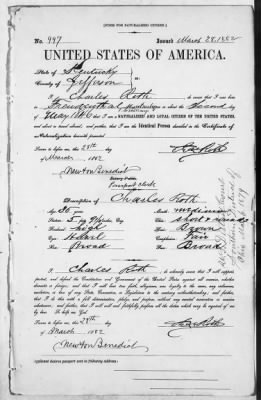 [FORM FOR NATURALIZED CITIZEN.]
No. 997 Issued March 28, 1882
UNITED STATES OF AMERICA.
State of Kentucky
County of Jefferson
I, Charles Roth, do swear that I was born in
on or about the Second
day of May 1846 that I am a NATURALIZED AND LOYAL CITIZEN OF THE UNITED STATES,
and about to travel abroad; and further, that I am the Identical Person described in the Certificate of
Naturalization herewith presented.
Sworn to before me, this 28th
day of March 1882
Newton Benedict
Notary Public.
Passport Clerk
Description of Charles Roth
Age: 36 years Mouth: medium
Stature: 5 Chin:
Forehead: high Hair: Brown
Eyes: Complexion: Fair
Nose: Broad Face: Broad
I, Charles Roth, do solemnly swear that I will support,
protect, and defend the Constitution and Government of the United States against all enemies, whether
domestic or foreign; and that I will bear true faith, allegiance, and loyalty to the same, any ordinance,
resolution, or law of any State, Convention, or Legislature to the contrary notwithstanding; and further,
that I do this with a full determination, pledge, and purpose, without any mental reservation or evasion
whatsoever; and further, that I will well and faithfully perform all the duties which may be required of me
by law: So help me God.
Sworn to before me, this 28th
day of March 1882
Newton Benedict
Applicant desires passport sent to following address: